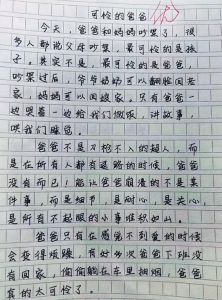 可怜的爸爸
今天，爸爸和妈妈吵架了，很
多人都说父母吵架，最可怜的是孩
子。其实不是，最可怜的是爸爸，
吵架过后，爷爷奶奶可以翻脸回老
家，妈妈可以回娘家。只有爸爸一
边哭着一边给我们做饭，讲故事，
哄我们睡觉。
爸爸不是刀枪不入的超人，而
是在所有人都有退路的时候，爸爸
没有而已！能让爸爸崩溃的不是某
件事，而是细节，是耐心，是关心，
是所有不起眼的小事堆积如山。
爸爸只有在感觉不到爱的时候
会变得烦躁，有好多次爸爸下班没
有回家，偷偷躺在车里抽烟，爸爸
真的太可怜了。